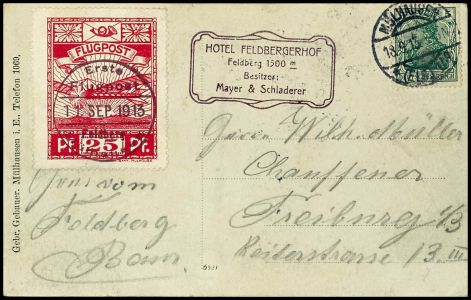 FLUGPOST
Erste
Flugpost
SEP. 1913
Feldberg
Pf. 25 Pf.
HOTEL FELDBERGERHOF
Feldberg 1500 m
Besitzer:
Mayer & Schladerer
MÜLHAUSEN
Gebr. Gebauer, Mülhausen i. E., Telefon 1069.
Herrn Wilh. Müller
Chauffeuer
Freiburg i/B
Reiterstrasse 13 III
Gruss vom
Feldberg